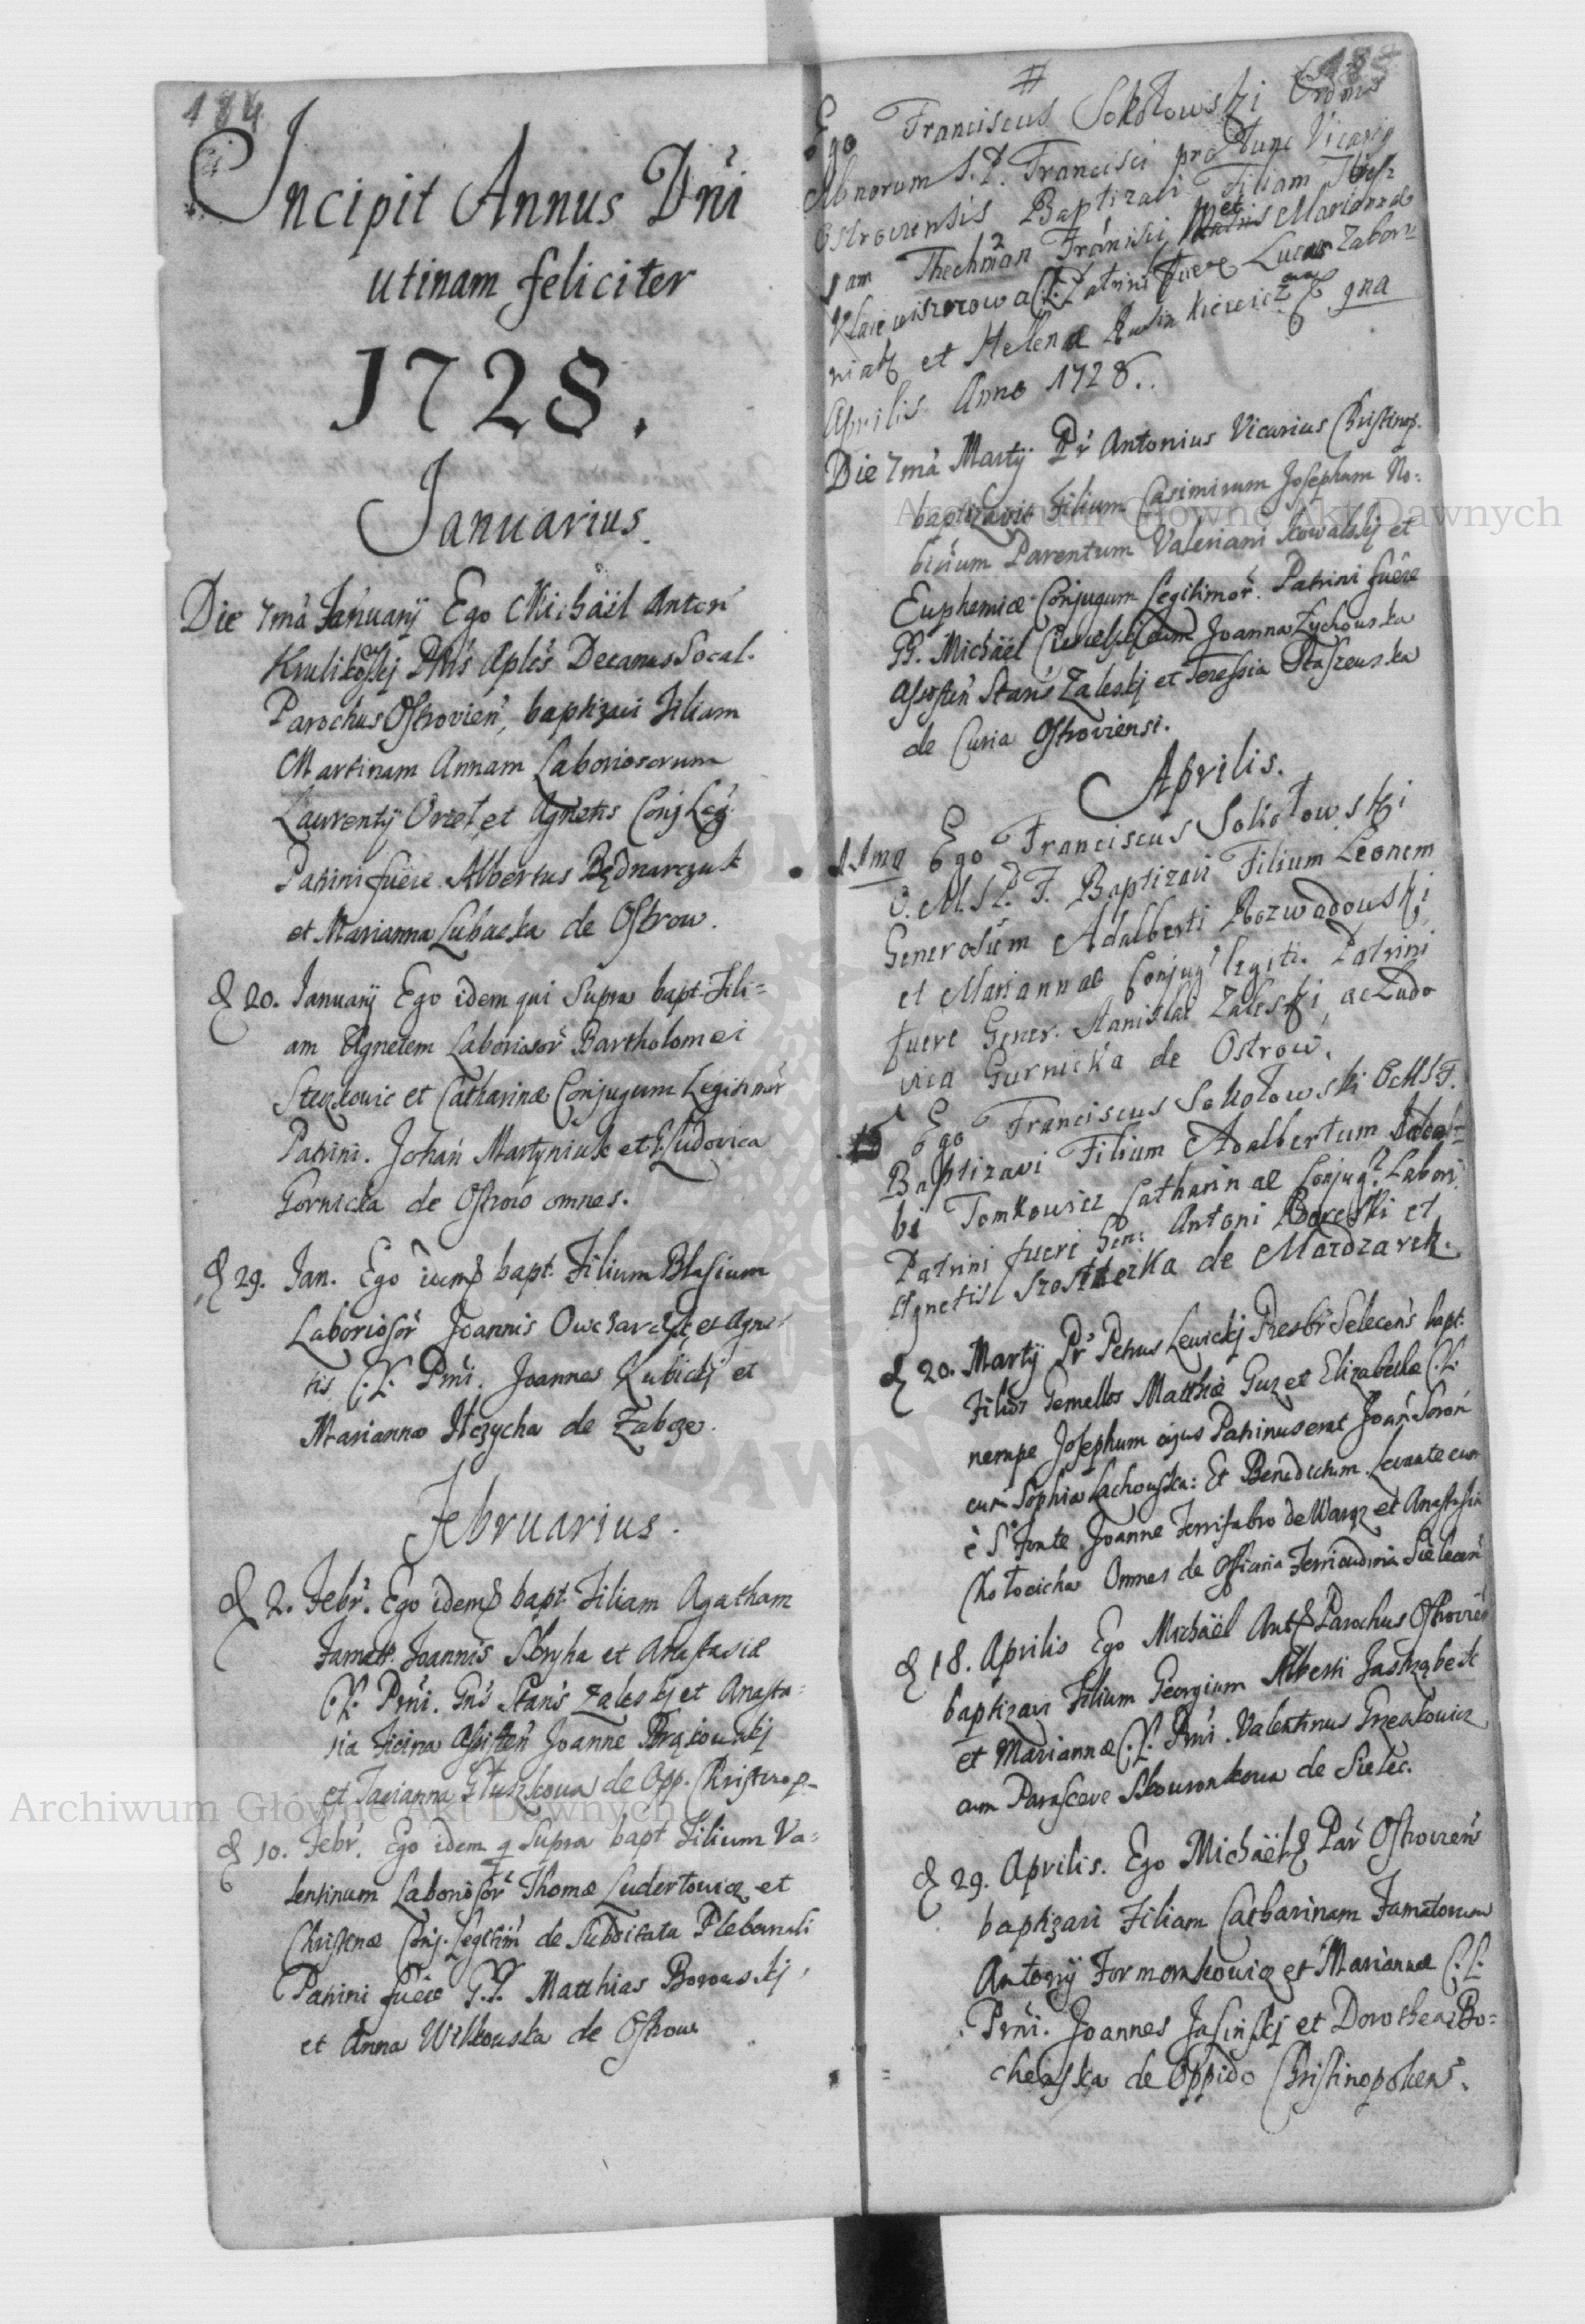 184
Incipit Annus Dńi
utinam feliciter
1728.
Januarius.
Die 7mâ Januarij Ego Michäel Anton
Krulikoskj Pthś Aplcś Decanus Socal.
Parochus Ostrovień, baptizavi Filiam
Martinam Annam Laboriosorum
Laurentij Orzeł et Agnetis Conj Leg
Patrini fuêre Albertus Będnarczuk
et Marianna Lubacka de Ostrow.
D 20. Januarij Ego idem qui Supra bapt Fili=
am Agnetem Laboriosoř Bartholomei
Steckowic et Catharinæ Conjugum Legitimoř
Patrini. Johań Martyniuk et Ludovica
Gornicka de Ostrow omnes.
D 29. Jan. Ego idemq bapt. Filium Blasium
Laboriosoř Joannis Owczarczyk et Agne
tis C.L. Prńi. Joannes Kubickj et
Marianna Ilczycha de Zabcze.
Februarius.
D 2. Febř. Ego idemq bapt. Filiam Agatham
Famatt. Joannis Skryha et Anastasiæ
C.L. Prńi. Gńś Stanś Zaleskj et Anasta=
sia Ficina Assisteń Joanne
et Marianna de Opp. Christinop.
D 10. Febř. Ego idem q Supra bapt Filium Va=
lentinum Laboriosoř Thomæ Ludertowicz et
Christinæ Conj. Legitim de Subditatu Plebanali
Patrini fuêre G.G. Matthias Borowskj
et Anna Witkowska de Ostrow
185
#
Ego Franciscus Sokołowski Ordinis
Minorum S.P. Francisci pro tunc Vicarij
Ostroviensis Baptizavi Filiam There=
sam Francisci et Mariannæ
C.L. Patrini fuere Lucas Zabor=
niak et Hellena 9na
Aprilis Anno 1728.
Die 7mâ Martij Př Antonius Vicarius Christinop.
baptizavit Filium Casimirum Josephum No=
bilium Parentum Valeriani Kowalskj et
Euphemiæ Conjugum Legitimoř. Patrini fuêre
GG. Michäel cum Joanna Zychowska
Assisteń Stanś Zaleskj et Teressia Staszewska
de Curia Ostroviensi.
Aprilis.
11ma Ego Franciscus Sokołowski
O.M.S.P.F. Baptizavi Filium Leonem
Generosum Adalberti Rozwadowski
et Mariannae Conjug legiti. Patrini
fuere Gener. Stanislai Zaleski, ac Ludo
vica Gurnicka de Ostrow.
15 Ego Franciscus Sokołowski OMSF.
Baptizavi Filium Adalbertum Jaco=
bi Tomkowicz Catharinae Conjug. Labori.
Patrini fueri Gen: Antoni et
Agnetis de
D 20. Martij Př Petrus Lewickj Presbř Selecenś bapt.
Filios Gemellos Matthiæ Guz et Elizabethæ C.L.
nempe Josephum cujus Patrinus erat Joań
cum Sophia Lachowska: Et Benedictum Levante eum
è S. Fonte Joanne Ferrifabro de Waręz et Anastasia
Chołocicha Omnes de Officina Ferricudinia Sieleceń
D 18. Aprilis Ego Michäel Antq Parochus Ostrovień
baptizavi Filium Georgium Alberti Jastrząbek
et Mariannæ C.L. Prńi. Valentinus Grzeskowicz
cum Parasceve Skouronkowa de Sielec.
D 29. Aprilis. Ego Michäel q Pař Ostrovieńś
baptizavi Filiam Catharinam Famatorum
Antonij Formankowicz et Mariannæ C.L.
Prńi. Joannes Jasinskj et Dorothea Bo=
cheńska de Oppido Christinopoleń.
Archiwum Główne Akt Dawnych
Archiwum Główne Akt Dawnych